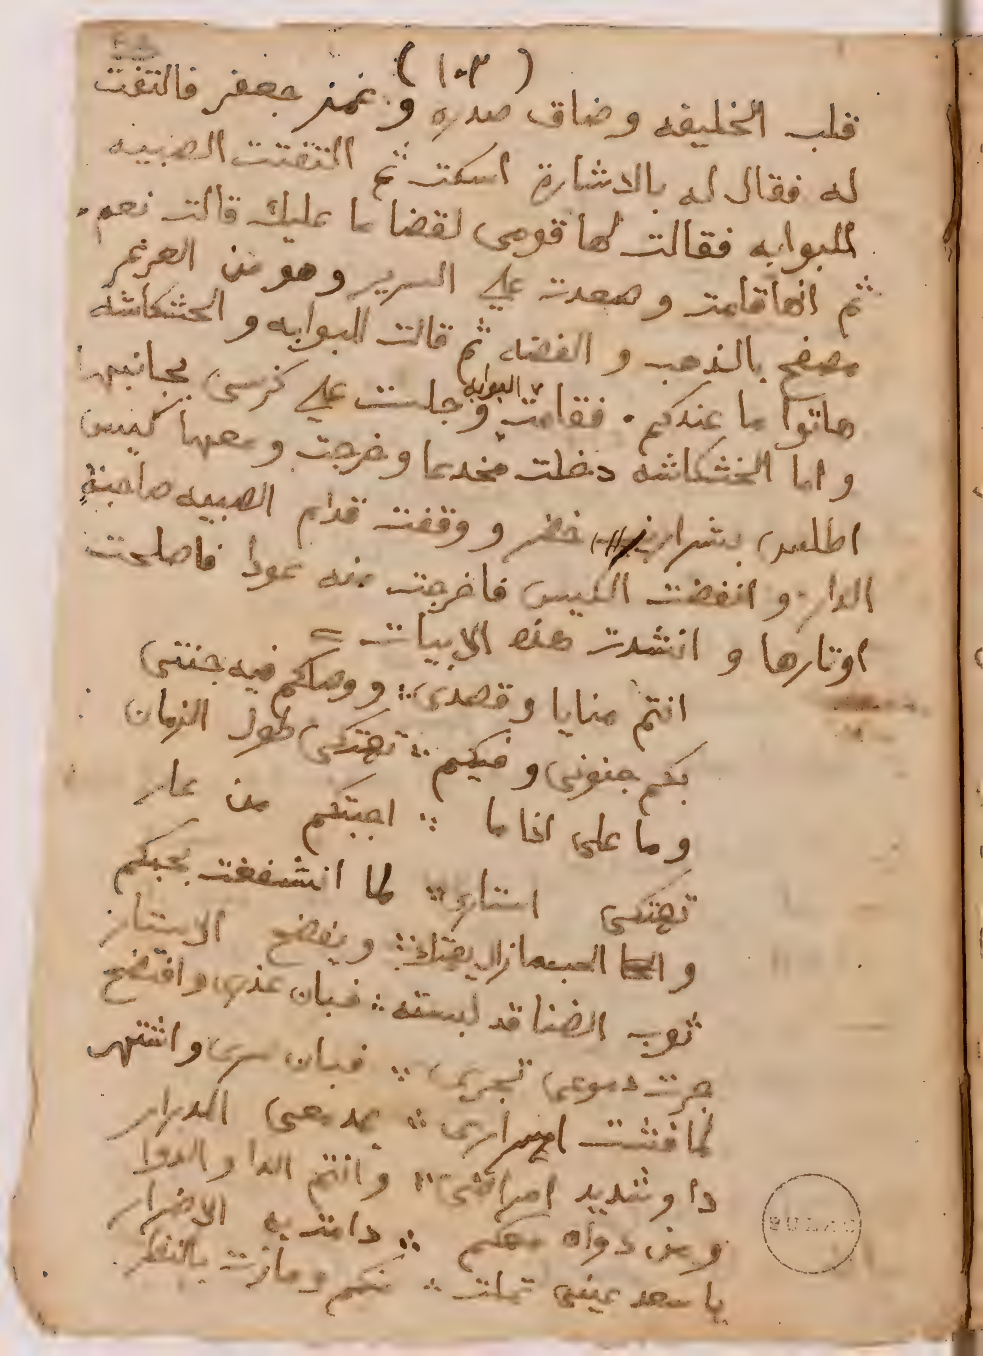 (١٠٣)
قلب الخليفه وضاق صدره وغمز جعفر فالتفت
له فقال له بالاشارة اسكت ثم التفتت الصبيه
للبوابه فقالت لها قومى لقضا ما عليك قالت نعم.
ثم انها قامت وصعدت على السرير وهو من العرعر
مصفح بالذهب و الفضه ثم قالت للبوابه و الخشكاشه
هاتوا ما عندكم. فقامت البوابه وجلست على كرسى بجانبها
و اما الخشكاشه دخلت مخدعا وخرجت ومعها كيس
اطلس بشراريب خضر ووقفت قدام الصبيه صاحبة
الدار و انفضت الكيس فاخرجت منه عودا فاصلحت
اوتارها و انشدت هذه الابيات =
انتم منايا وقصدى ∴ ووصلكم فيه جنتى
بكم جنونى وفيكم ∴ تهتكى طول الزمان
وما على اذا ما ∴ احبتكم من عار
تهتكى استارى ∴ لما انشغفت بحبكم
و الحب ما زال يهتك ∴ ويفضح الاستار
ثوب الضنا قد لبسته ∴ فبان عذرى وافتضح
جرت دموعى تجرى ∴ فبان سرى واشتهر
لما فشت اسرارى ∴ بمدمعى المدرار
داوو شديد امراضى ∴ وانتم الدا والدوا
ومن دواه معكم ∴ دامت به الاضرار
BULAC